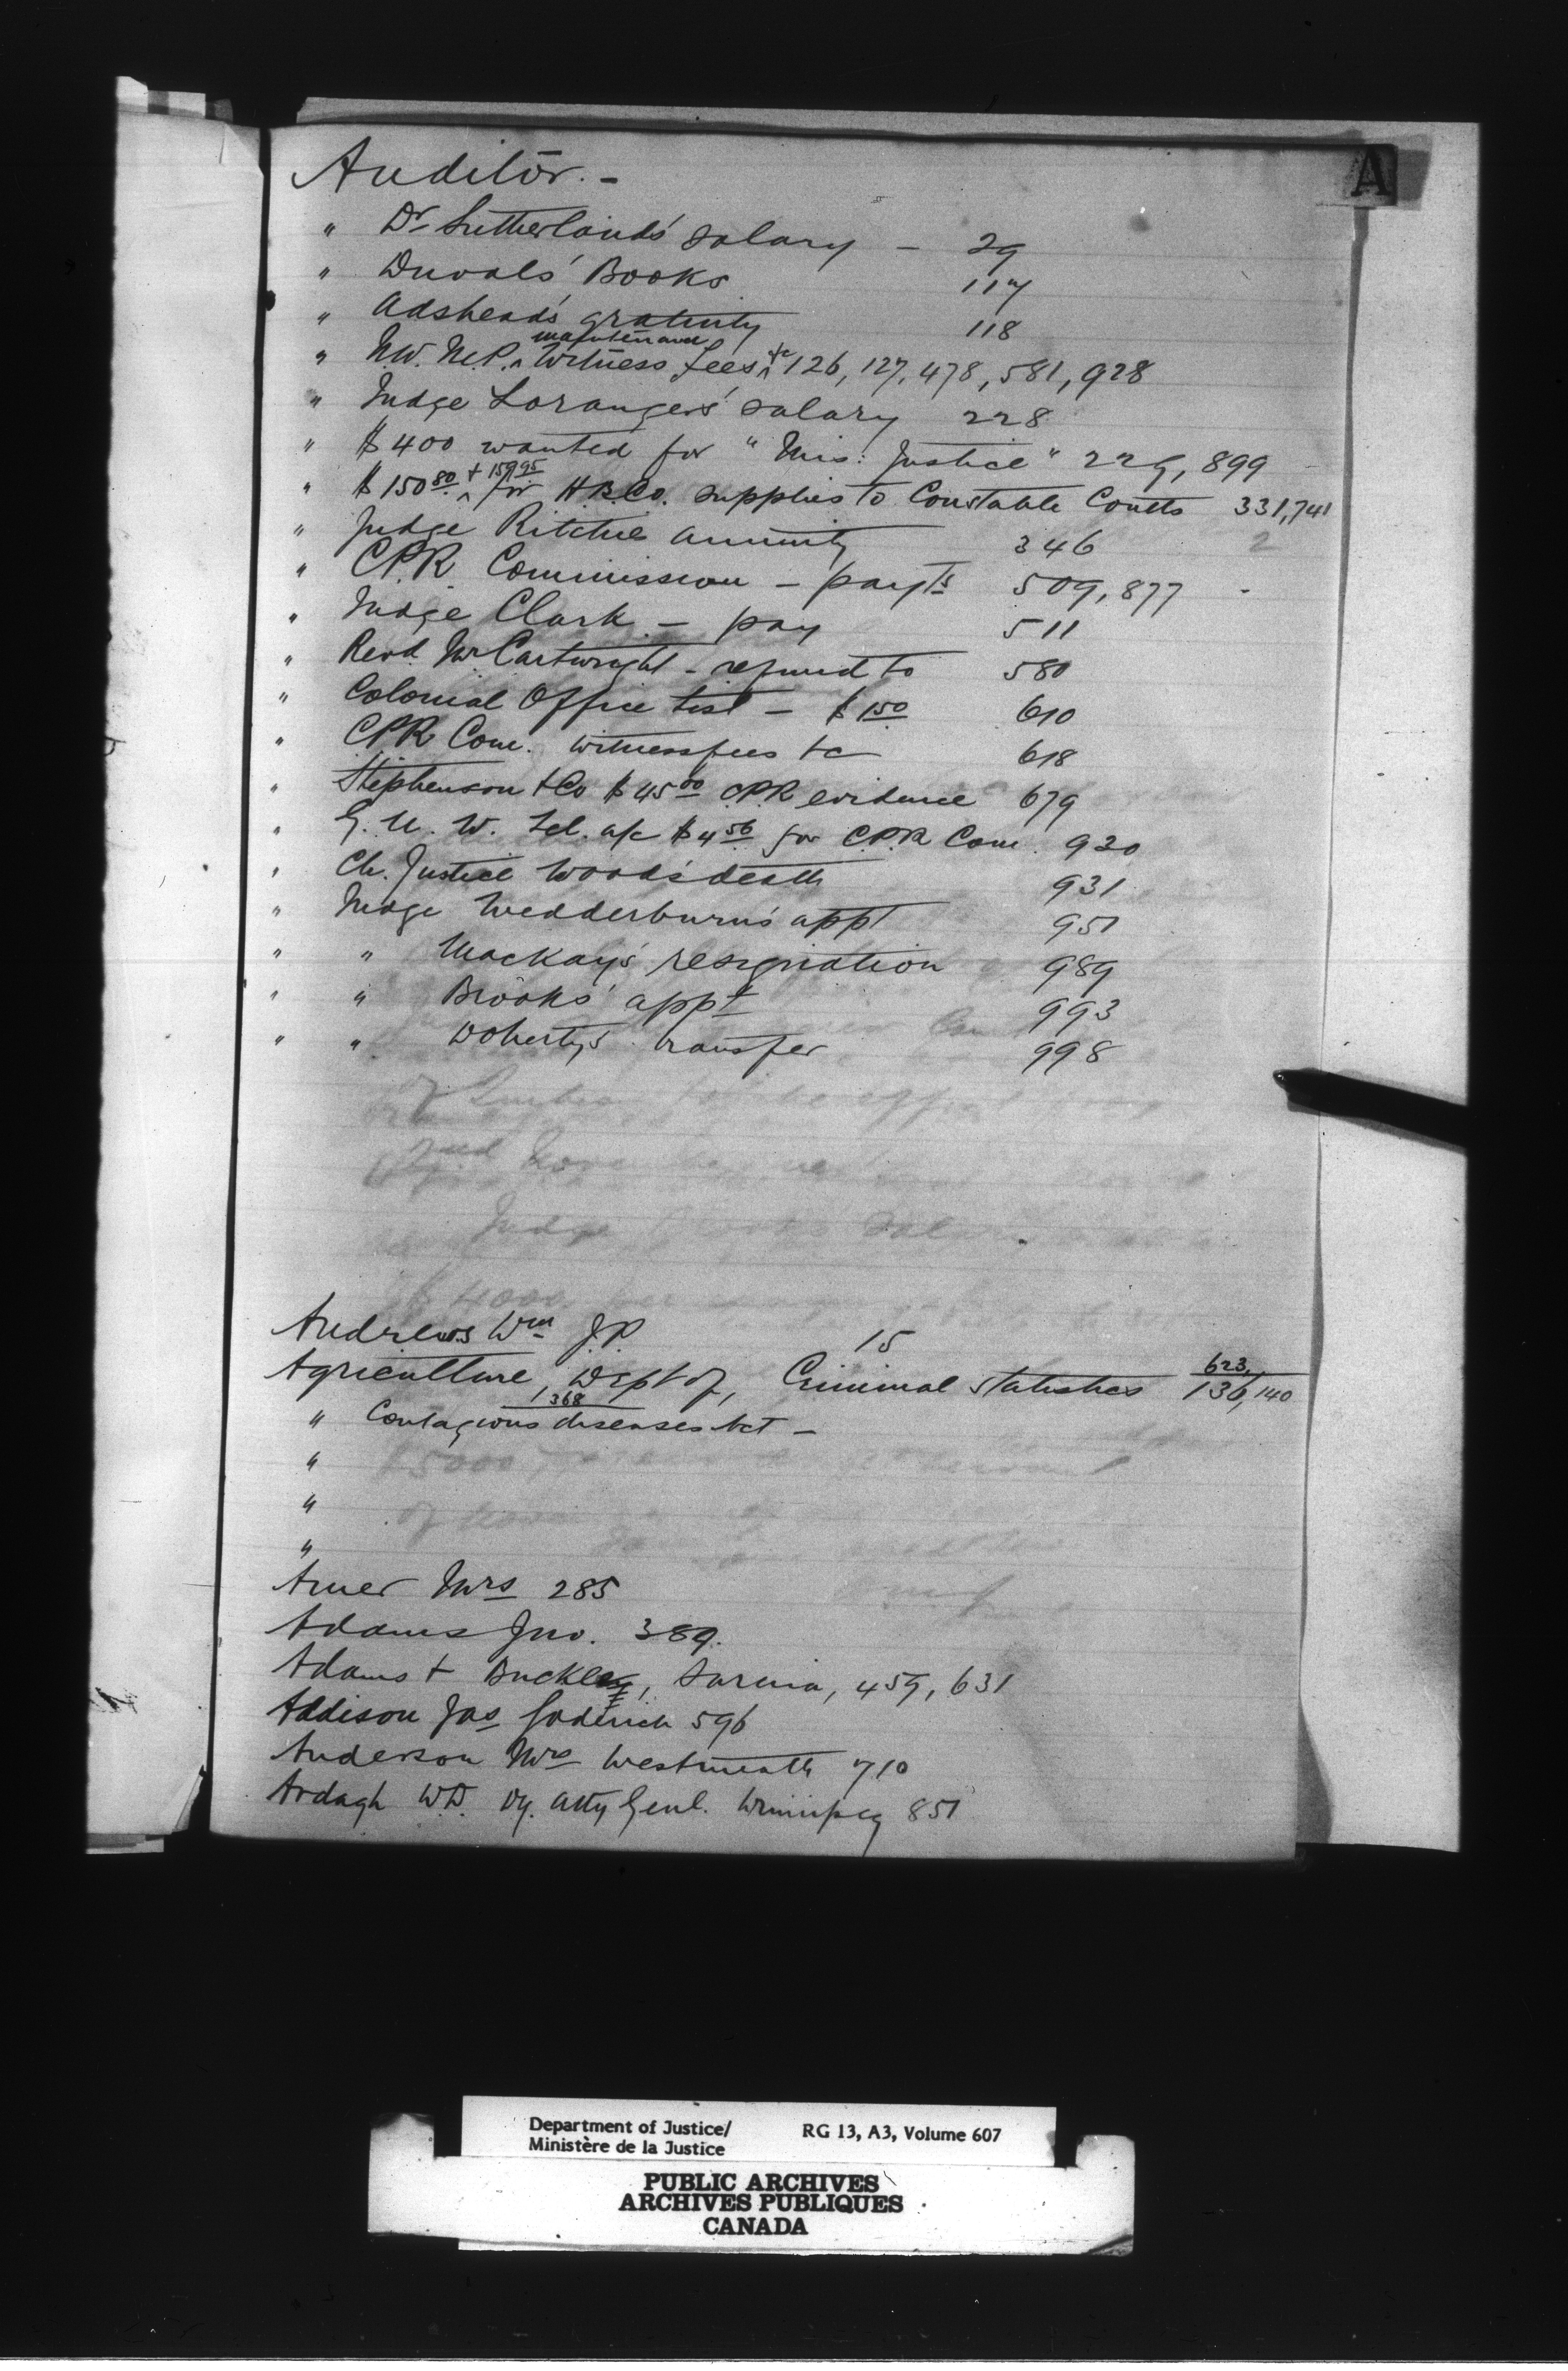 A
Auditor. -
" Dr Sutherland's salary - 29
" Duval's Books 117
" Adshead's gratuity 118
" N.W. M.P. maintenance Witness Fees &c 126, 127, 478, 581, 928
" Judge Loranger's salary 228
" $400 wanted for "Mis: Justice" 229, 899
" $150 80 + 159 95 for H.B.Co. supplies to Constable Coutts 331, 741
" Judge Ritchie annuity 346 2
" C.P.R. Commission - payts 509, 877
" Judge Clark - pay 511
" Revd. Mr Cartwright - refund to 580
" Colonial Office List - $1 50 610
" CPR Com. witness fees &c 618
" Stephenson & Co $45 00 CPR evidence 679
" G. N. W. Tel. a/c $4 56 for C.P.R Com. 920
" Ch. Justice Wood's death 931
" Judge Wedderburn's appt 951
" " Mackay's resignation 989
" " Brooks' appt 993
" " Doherty's transfer 998
Andrews Wm J.P. 15
Agriculture, Dept of, Criminal Statistics 623, 136, 140
" Contagious diseases Act - 1368
"
"
"
Amer Mrs 285
Adams Jno. 389.
Adams & Buckley, Sarnia, 459, 631
Addison Jas Goderich 596
Anderson Mrs Westmeath 710
Ardagh W.D. Dy. Atty Genl. Winnipeg 851
Department of Justice/ RG 13, A3, Volume 607
Ministère de la Justice
PUBLIC ARCHIVES
ARCHIVES PUBLIQUES
CANADA